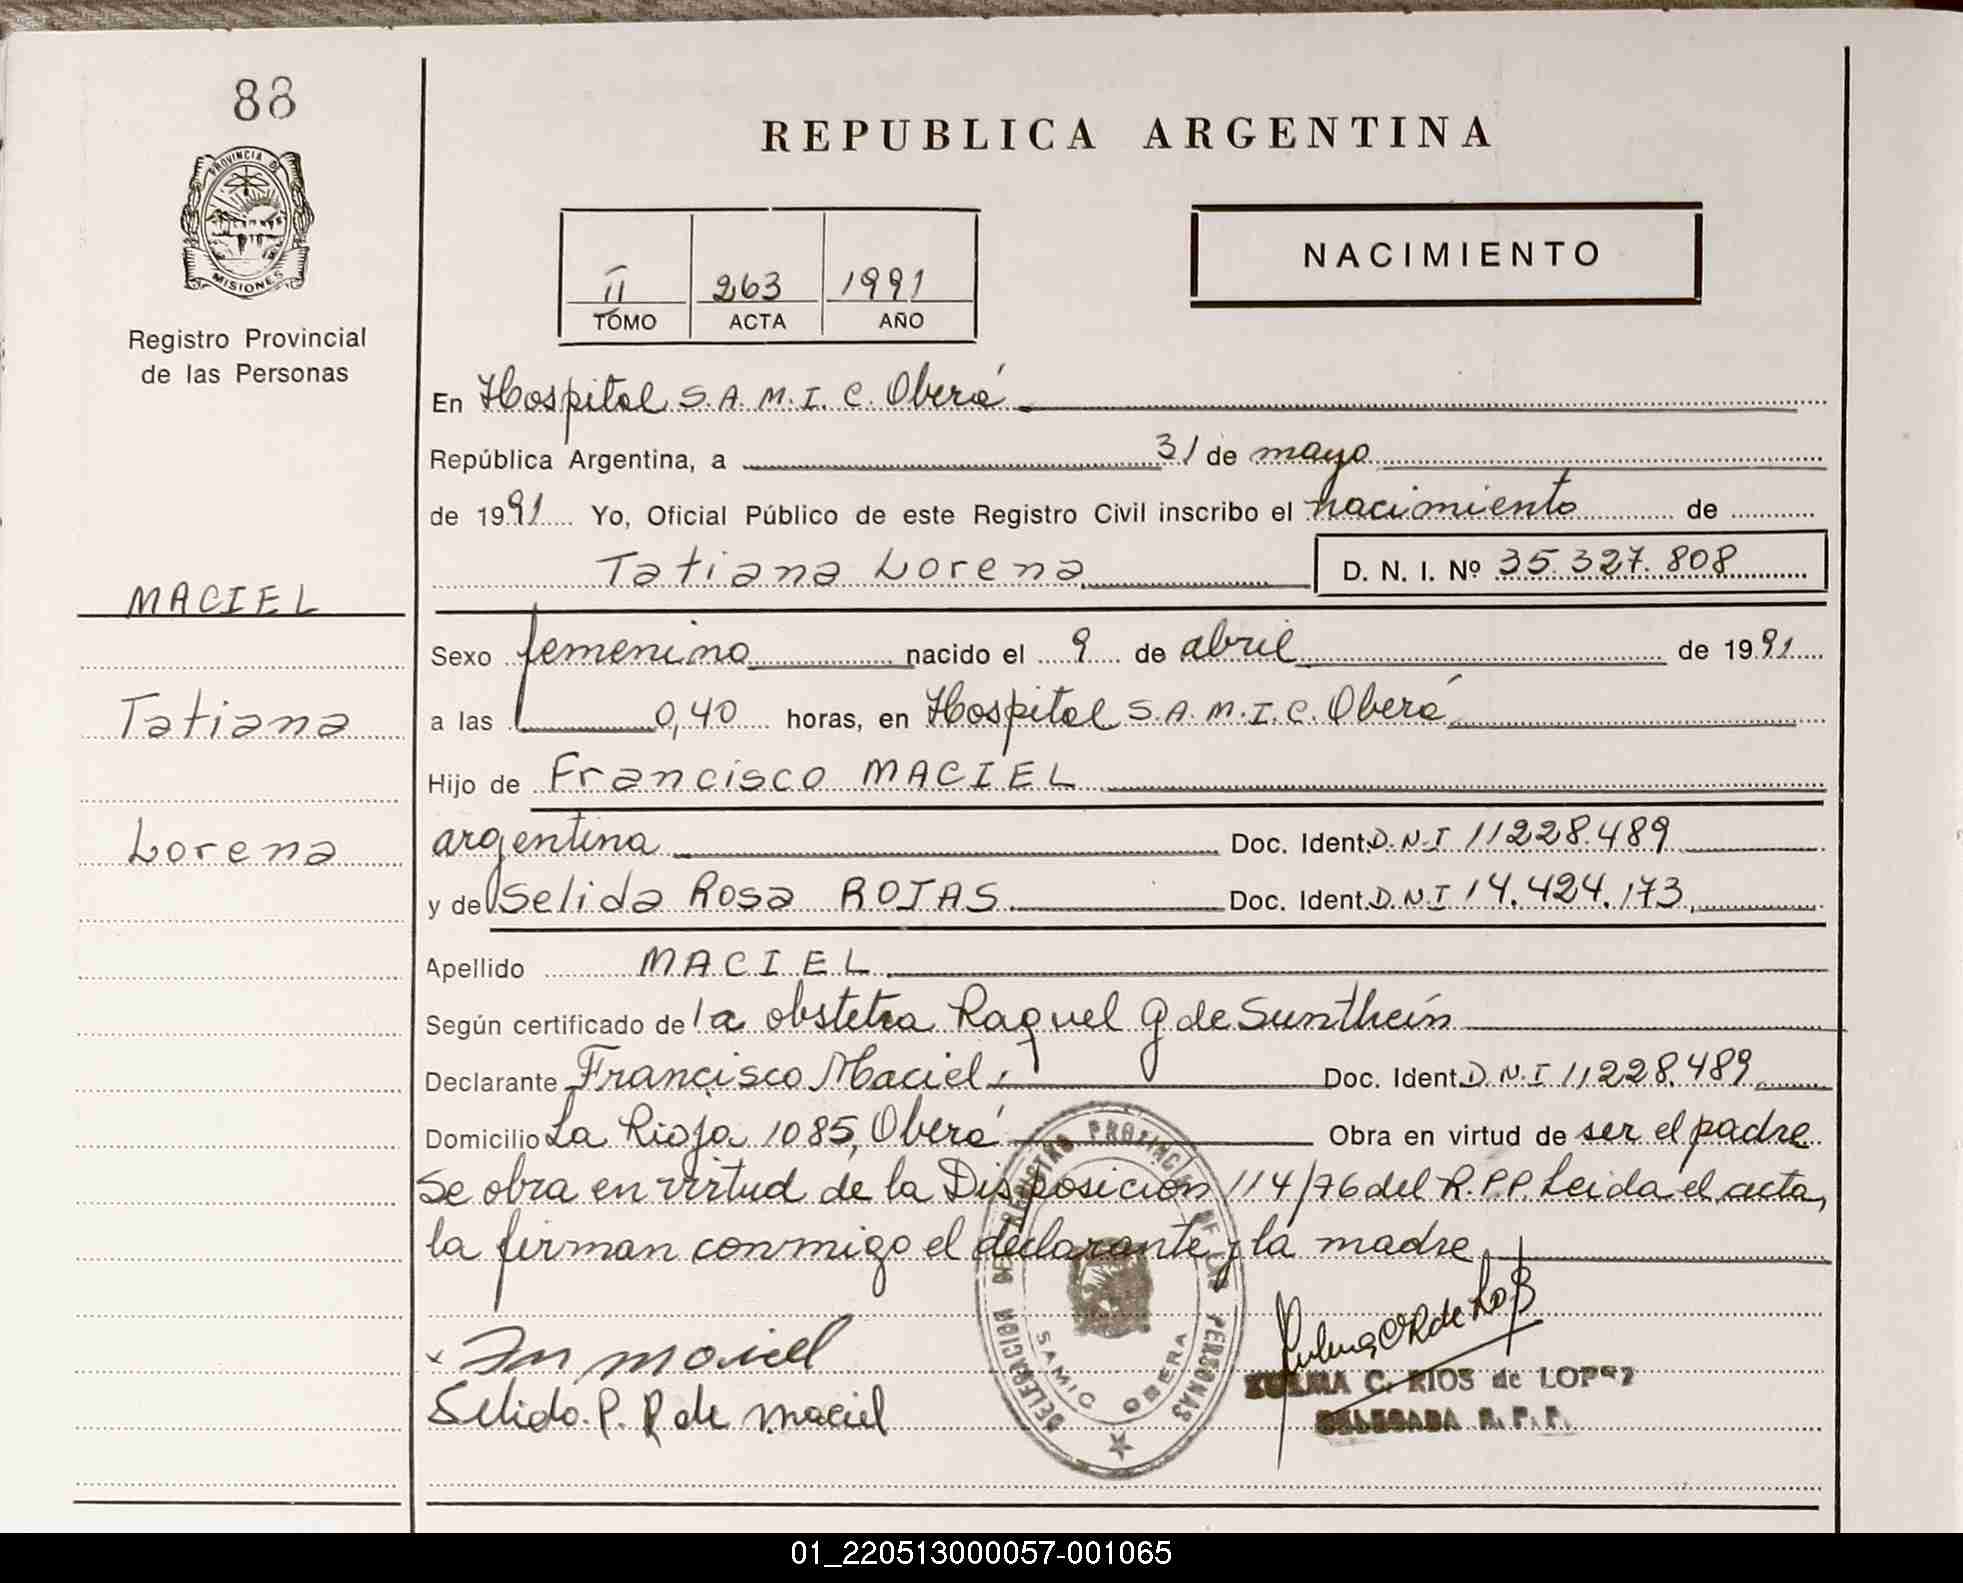 88
PROVINCIA DE
MISIONES
Registro Provincial
de las Personas
MACIEL
Tatiana
Lorena
REPUBLICA ARGENTINA
II 263 1991
TOMO ACTA AÑO
NACIMIENTO
En Hospital S.A.M.I.C. Oberá
República Argentina, a 31 de mayo
de 1991 Yo, Oficial Público de este Registro Civil inscribo el nacimiento de
Tatiana Lorena D. N. I. Nº 35.327.808
Sexo femenino nacido el 9 de abril de 1991
a las 0,40 horas, en Hospital S.A.M.I.C. Oberá
Hijo de Francisco MACIEL
argentina Doc. Ident. D.N.I 11228.489
y de Selida Rosa ROJAS Doc. Ident. D.N.I 14.424.173
Apellido MACIEL
Según certificado de la obstetra Raquel G de Sunthein
Declarante Francisco Maciel, Doc. Ident. D.N.I 11228.489
Domicilio La Rioja 1085, Oberá Obra en virtud de ser el padre
Se obra en virtud de la Disposición 114/76 del R.P.P. Leida el acta,
la firman conmigo el declarante y la madre
DELEGACION DE REGISTRO PROVINCIAL DE LAS PERSONAS
SAMIC OBERA
Maciel
Selido. P. R de Maciel
ZULMA C. RIOS de LOPEZ
DELEGADA R. P. P.
01_220513000057-001065